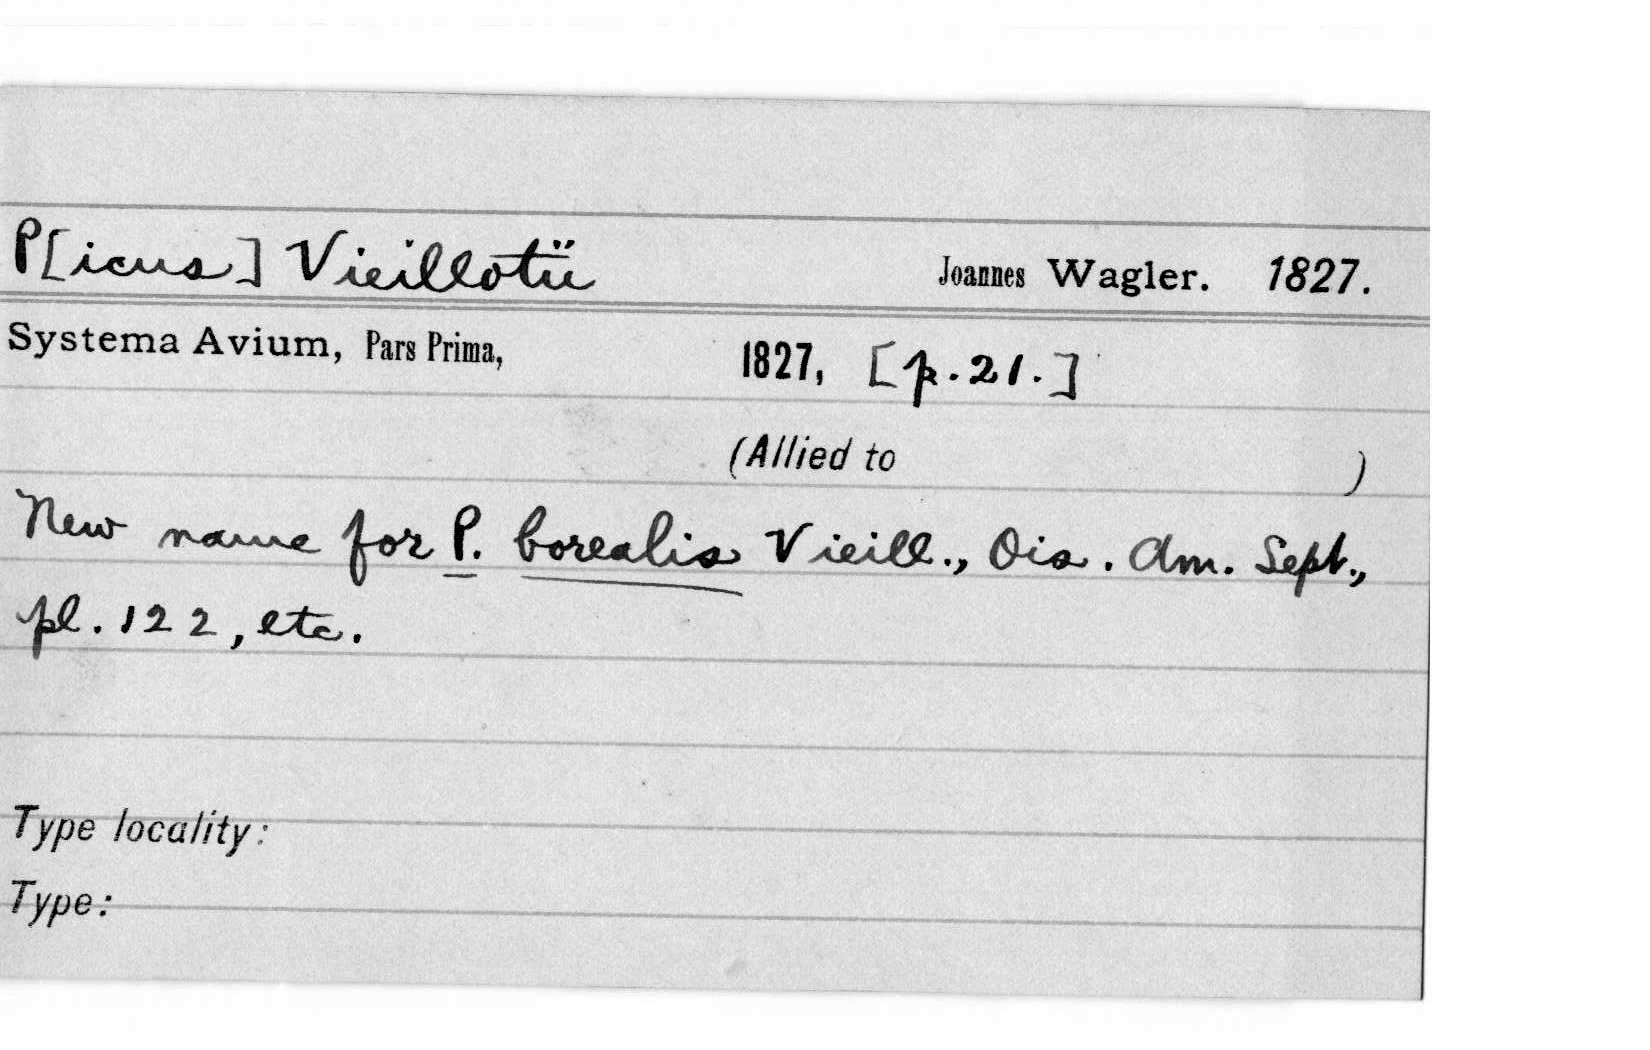 P[icus] Vieillotii Joannes Wagler. 1827.
Systema Avium, Pars Prima, 1827, [p.21.]
(Allied to )
New name for P. borealis Vieill., Ois. Am. Sept.,
pl. 122, etc.
Type locality:
Type: